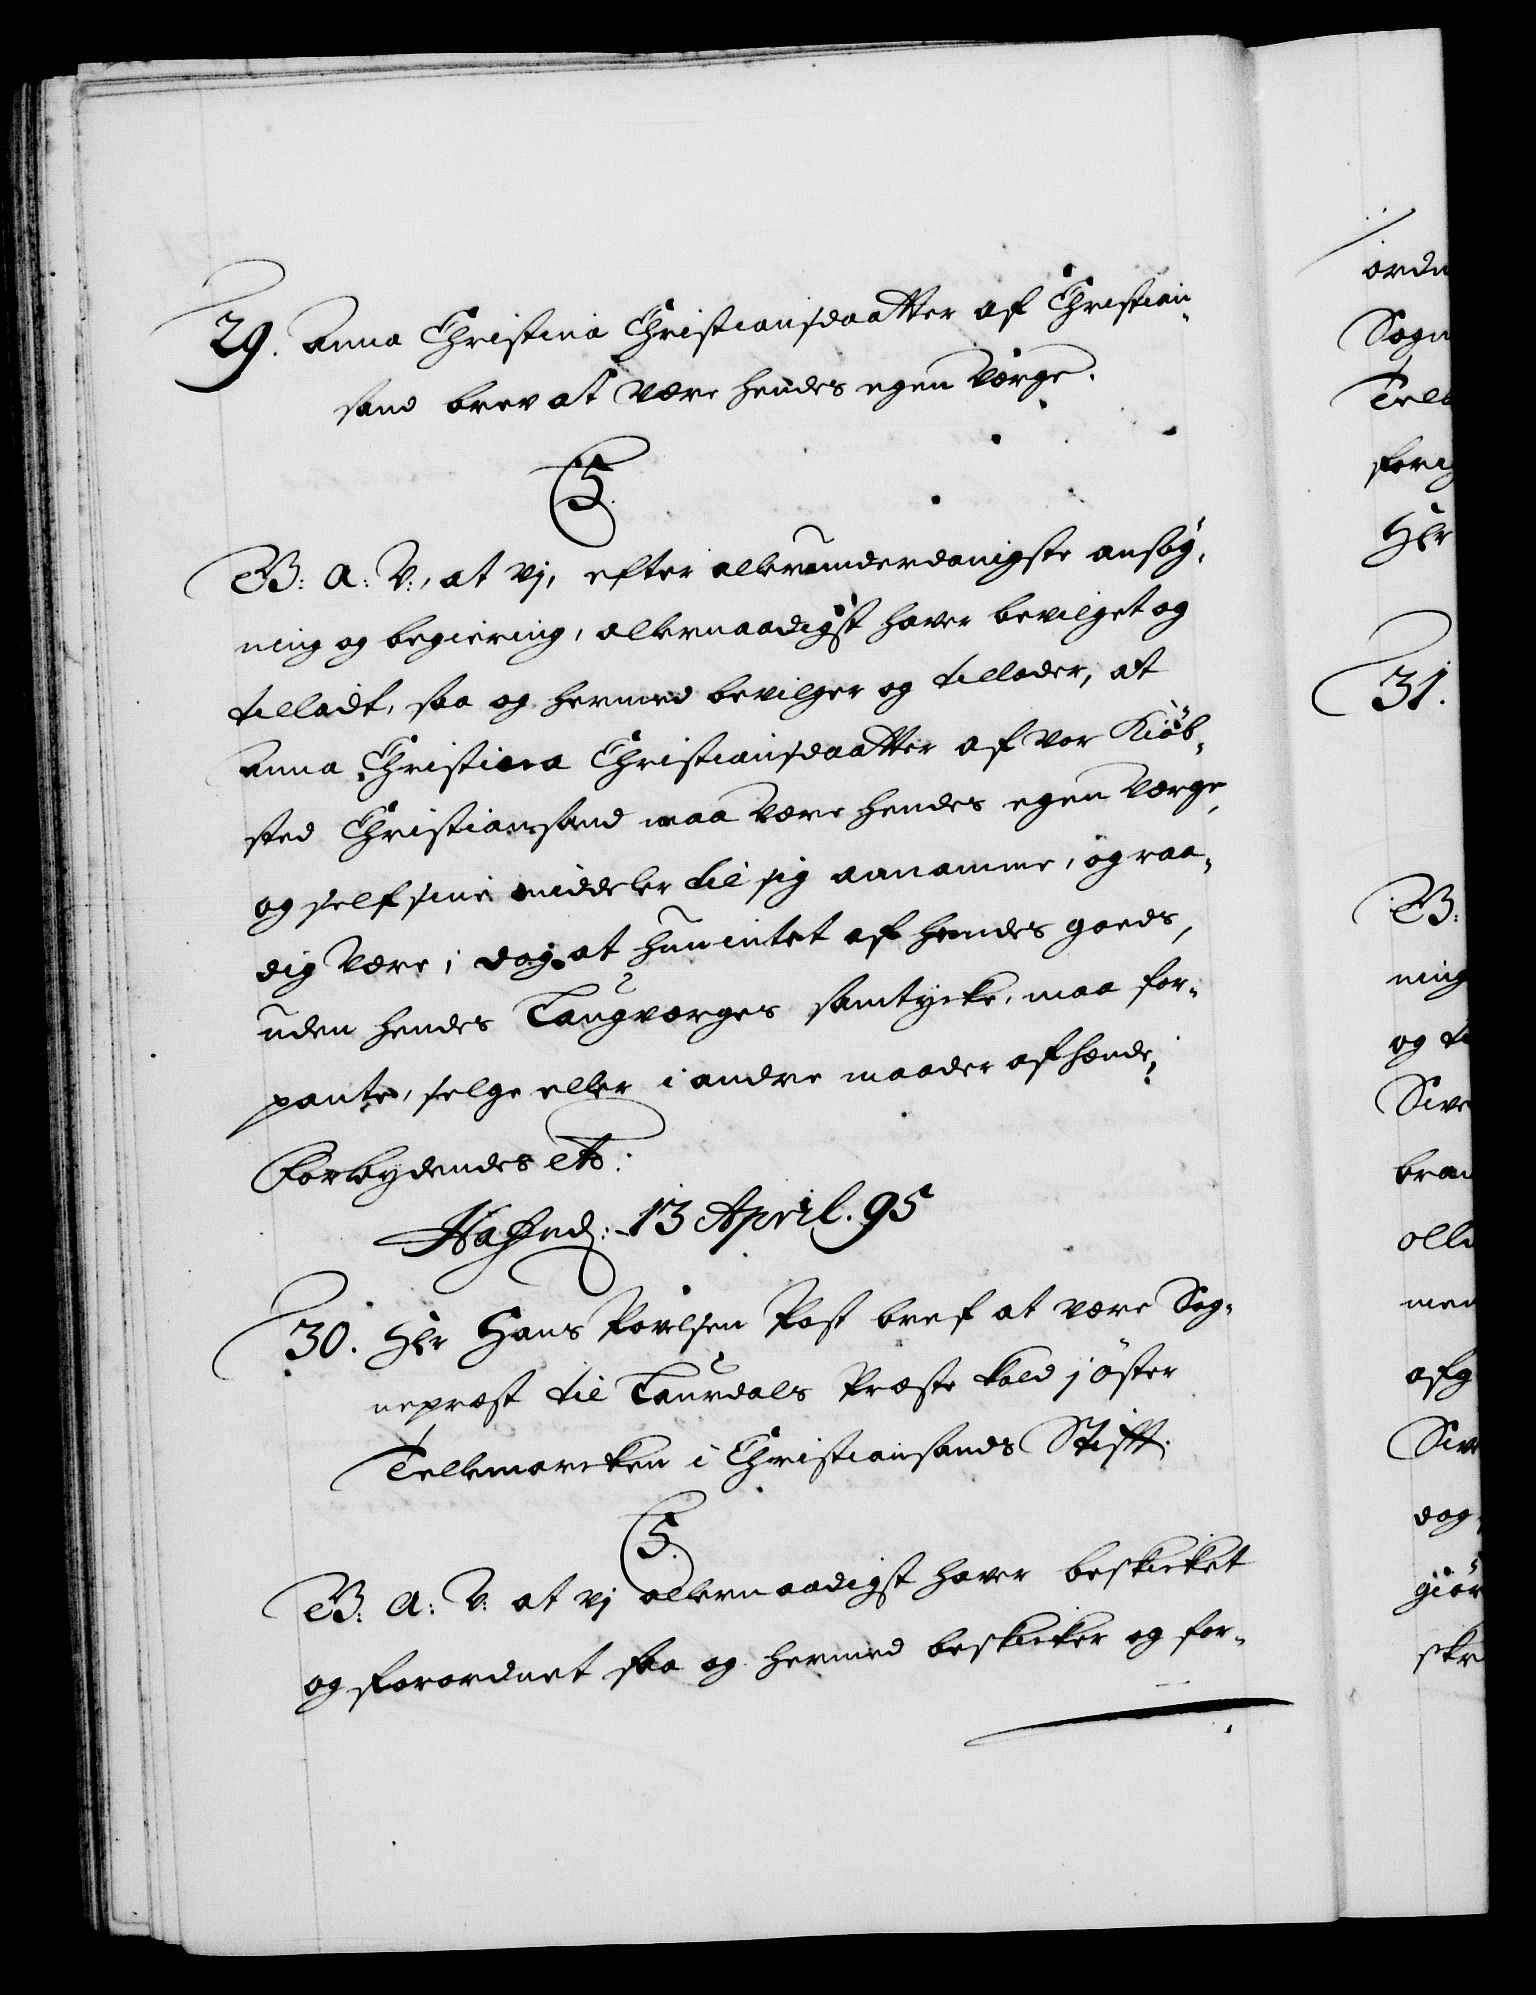 29. Anna Christina Christiansdaatter af Christian-
sand brev at være hendes egen Værge.
C5.
B: A: V:, at vj, efter allerunderdanigste ansøg-
ning og begiering, allernaadigst haver bevilget og
tilladt, saa og hermed bevilger og tillader, at
Anna Christina Christiansdaatter af vor Kiøb-
sted Christiansand maa være hendes egen Værge,
og self sine midler til sig annamme, og raa-
dig være; dog at hun intet af hendes goeds,
uden hendes Laugværges samtycke, maa for-
pante, selge eller i andre maader afhænde;
Forbydendes etc:
Hafned: 13 April. 95
30. Hr Hans Povelsen Post bref at være Sog-
nepræst til Laurdals Præste kald j Øster
Tellemarcken i Christiansands Stifft.
C5.
B: A: V: at vj allernaadigst haver beskicket
og forordnet saa og hermed beskicker og for-
ordn
Sogn
Tell
forig
Hr
31.
B:
ning
og ti
Sive
bran
alle
men
afg
Siv
dog
giør
skr